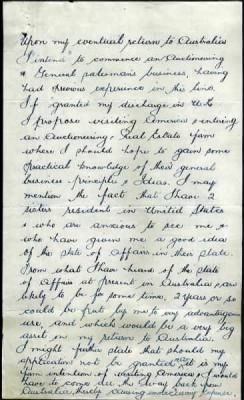 Upon my eventual return to Australia
I intend to commence an Auctioneering
& General salesman's business, having
had previous experience in this line.
If granted my discharge in U.K
I propose visiting America & entering
an Auctioneering & Real Estate firm
where I should hope to gain some
practical knowledge of their general
business principles & Ideas. I may
mention the fact that I have 2
sisters resident in United States
& who are anxious to see me &
who have given me a good idea
of the state of affairs in their state.
From what I have heard of the state
of affairs at present in Australia & are
likely to be for some time, 2 years or so
could be put by me to very advantageous
use, and which would be a very big
asset on my return to Australia.
I might further state that should my
application not be granted, it is my
firm intention of visiting America, & I would
have to come all the way back from
Australia, thereby causing unnecessary expense.